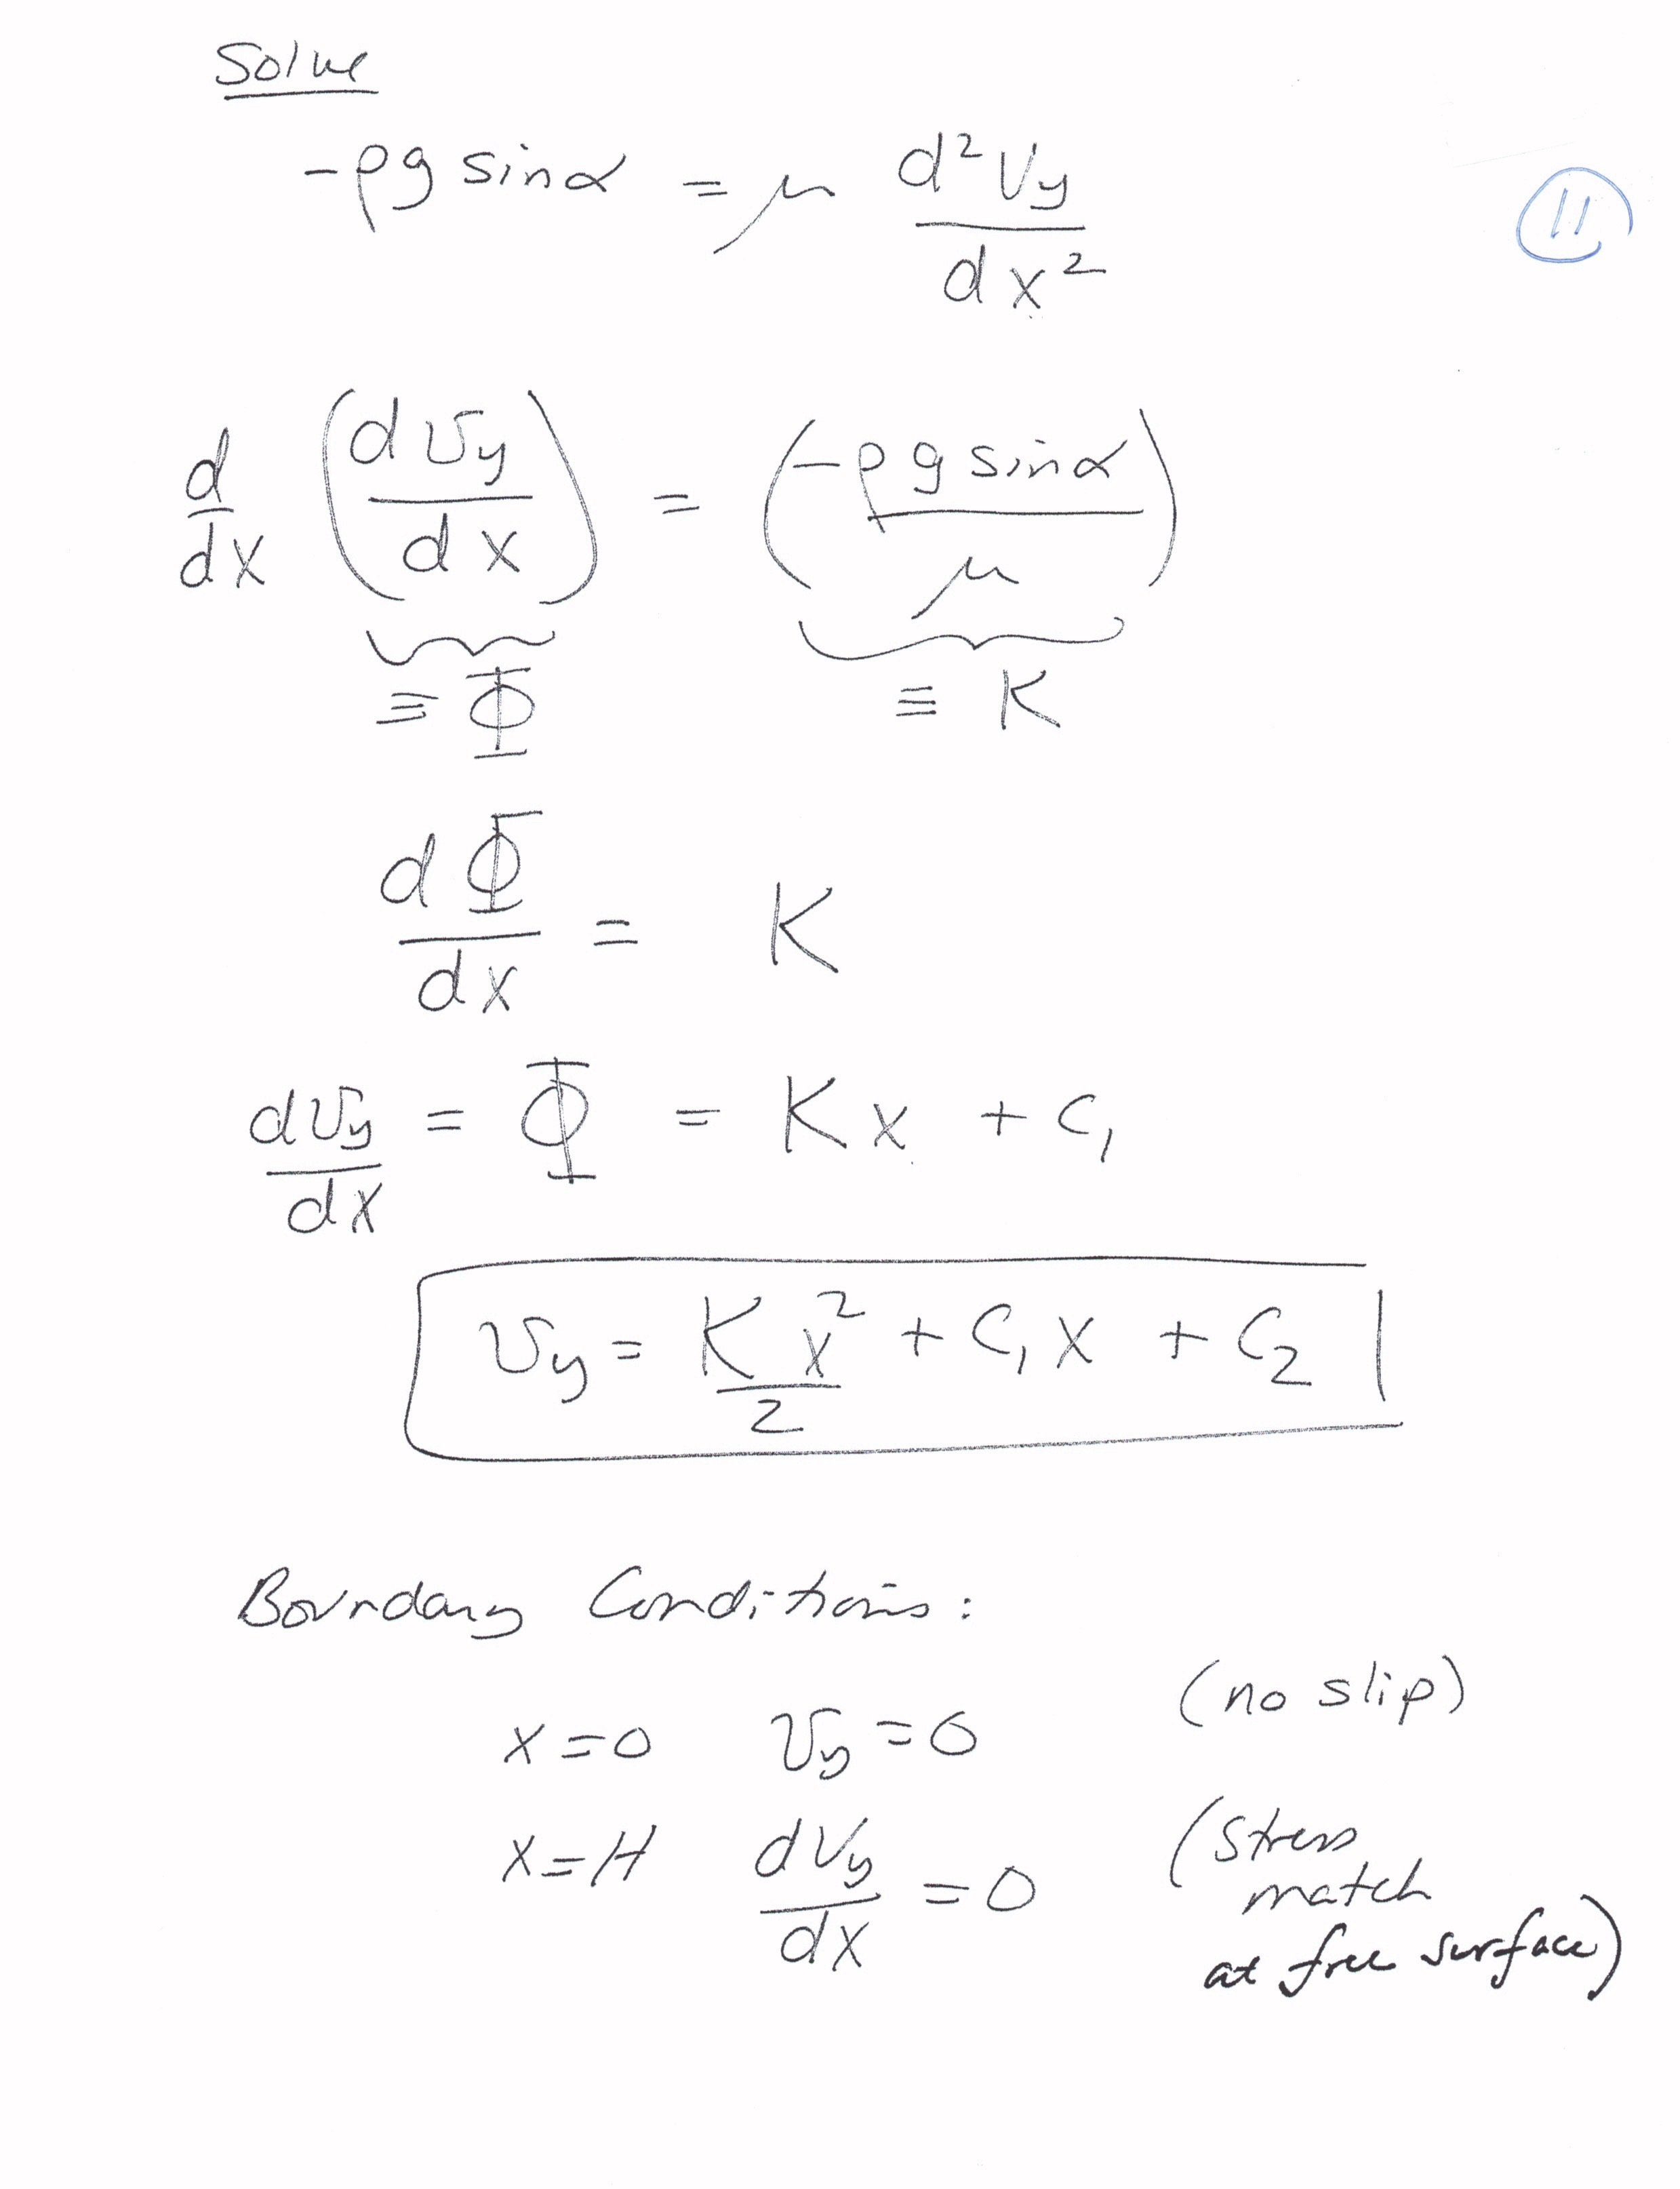 Solve
-ρg sinα = μ d²Vy/dx²
11
d/dx (dvy/dx) = (-ρg sinα/μ)
≡ Φ ≡ K
dΦ/dx = K
dvy/dx = Φ = Kx + C₁
vy = Kx²/2 + C₁x + C₂
Boundary Conditions:
x=0 vy=0 (no slip)
x=H dvy/dx = 0 (stress
match
at free surface)